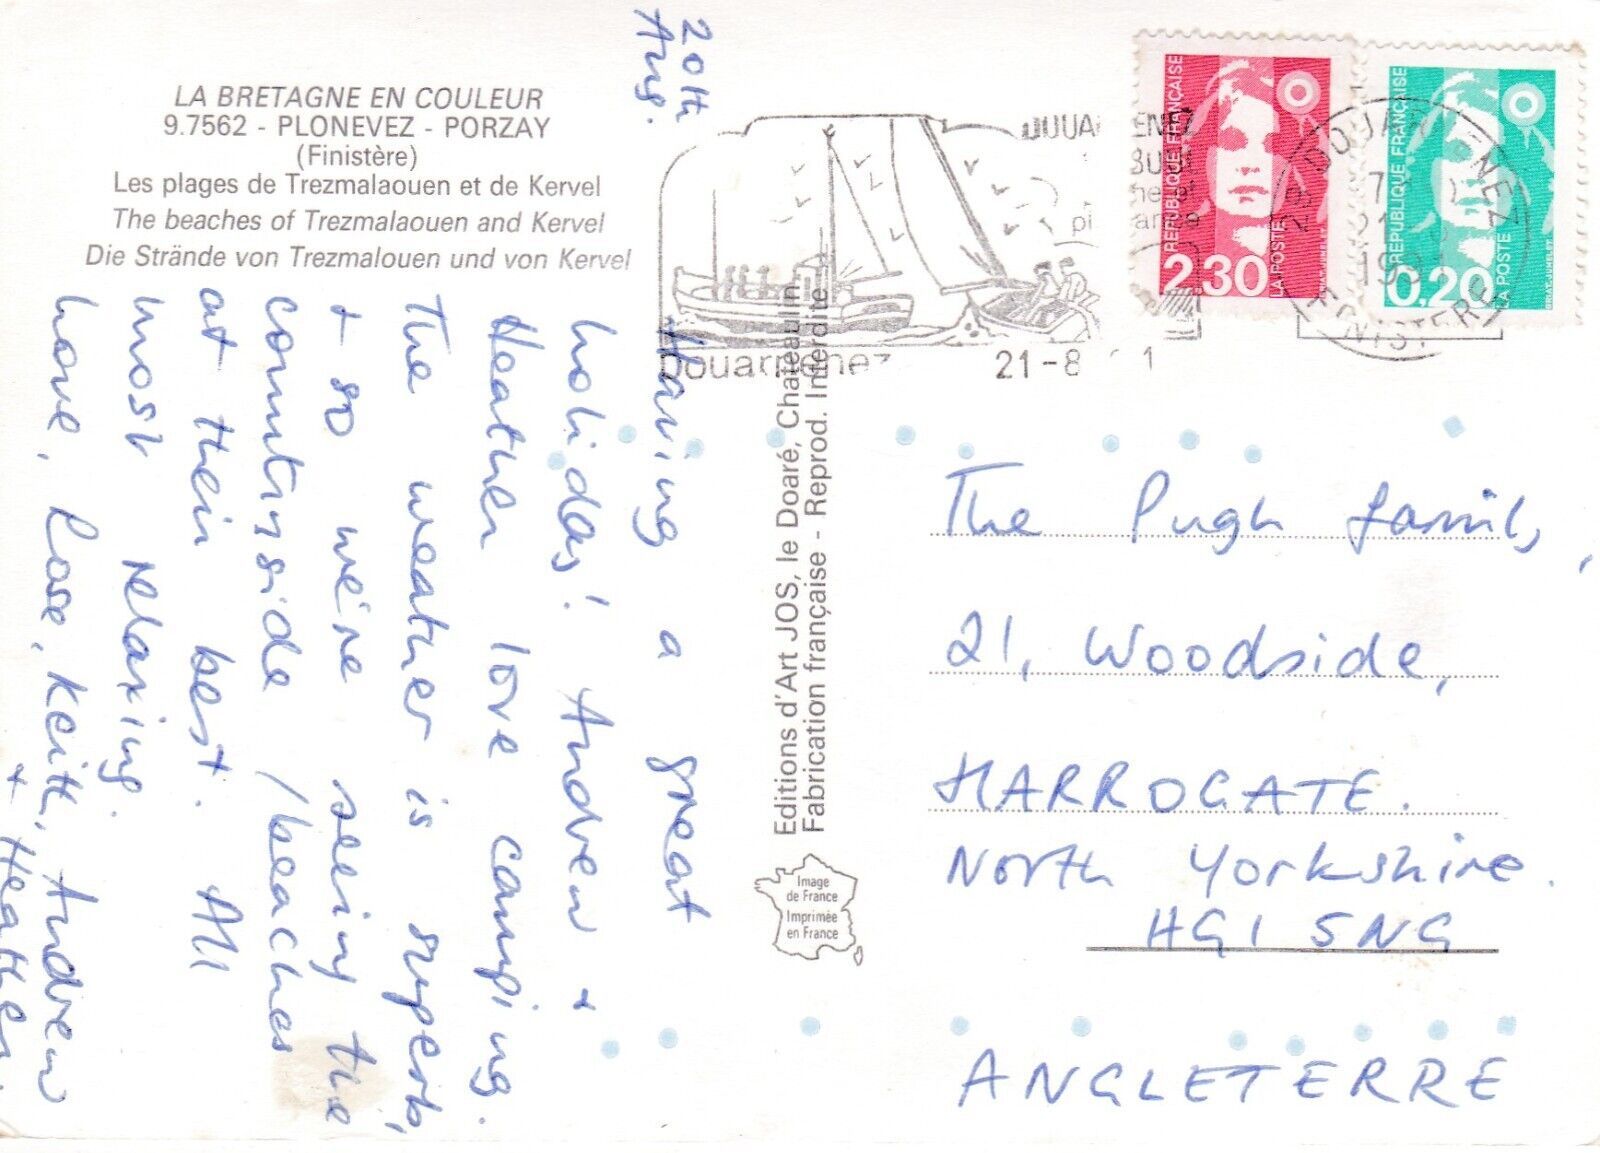 LA BRETAGNE EN COULEUR
9.7562 - PLONEVEZ - PORZAY
(Finistère)
Les plages de Trezmalaouen et de Kervel
The beaches of Trezmalaouen and Kervel
Die Strände von Trezmalouen und von Kervel
20th
Aug.
Having a great
holiday! Andrew +
Heather love camping.
The weather is superb,
+ so we're seeing the
countryside / beaches
at their best. All
most relaxing.
Love, Rose, Keith, Andrew
+ Heather.
Editions d'Art JOS, le Doaré, Chateaulin
Fabrication française - Reprod. Interdite
Image
de France
Imprimée
en France
Douarnenez
21-8
REPUBLIQUE FRANÇAISE
2,30
LA POSTE
REPUBLIQUE FRANÇAISE
0,20
LA POSTE
29 DOUARNENEZ
FINISTERE
The Pugh family,
21, Woodside,
HARROGATE.
North Yorkshire.
HG1 5NG
ANGLETERRE